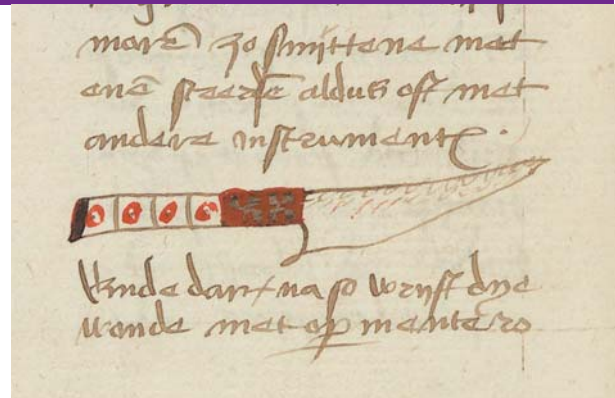 maren zo snittene met
enē scerpē aldus oft met
andere instrumentē.
Ende dar na so wrijft dye
wonde met opimente zo